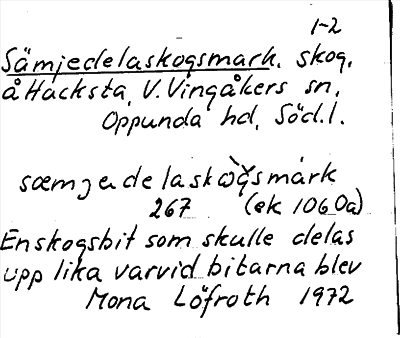 1-2
Sämjedelaskogsmark. skog.
å Hacksta, V. Vingåkers sn.
Oppunda hd, Söd.l.
sæmjedelaskògsmark
267 (ek 106 0a)
En skogsbit som skulle delas
upp lika varvid bitarna blev
Mona Löfroth 1972